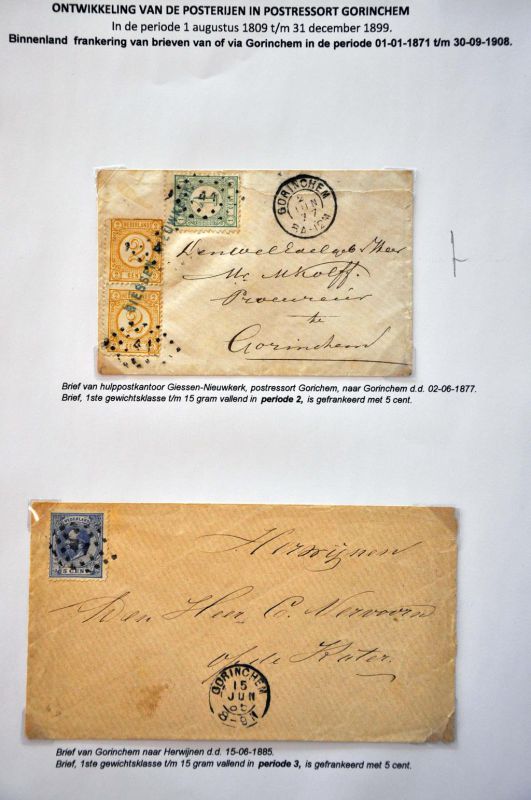 ONTWIKKELING VAN DE POSTERIJEN IN POSTRESSORT GORINCHEM
In de periode 1 augustus 1809 t/m 31 december 1899.
Binnenland frankering van brieven van of via Gorinchem in de periode 01-01-1871 t/m 30-09-1908.
GORINCHEM
2
JUN
77
8A-12M
NEDERLAND
GIESSEN
41
41
DenWelEdelgeb Heer
Mr. M Kolff.
Procureur
te
Gorinchem
Brief van hulppostkantoor Giessen-Nieuwkerk, postressort Gorichem, naar Gorinchem d.d. 02-06-1877.
Brief, 1ste gewichtsklasse t/m 15 gram vallend in periode 2, is gefrankeerd met 5 cent.
NEDERLAND
5 CENT
Herwijnen
Den Heer C. Vervoorn
op de Kater.
GORINCHEM
15
JUN
Brief van Gorinchem naar Herwijnen d.d. 15-06-1885.
Brief, 1ste gewichtsklasse t/m 15 gram vallend in periode 3, is gefrankeerd met 5 cent.